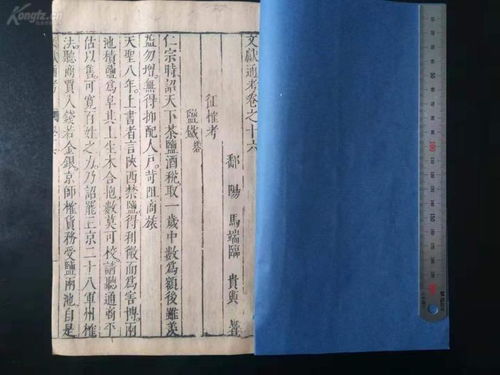 文獻通考卷之十六
鄱陽馬端臨貴與著
征榷考
鹽鐵礬
仁宗時詔天下茶鹽酒稅取一歲中數為額後雖羨
益勿增無得抑配人戶苛阻商旅
天聖八年上書者言陝西禁鹽得利微而為害博兩
池積鹽為阜其上生木合抱數莫可校請聽通商平
估以售可寬百姓之力乃詔罷三京二十八軍州榷
法聽商賈入錢若金銀京師榷貨務受鹽兩池自是
Kongfz.cn